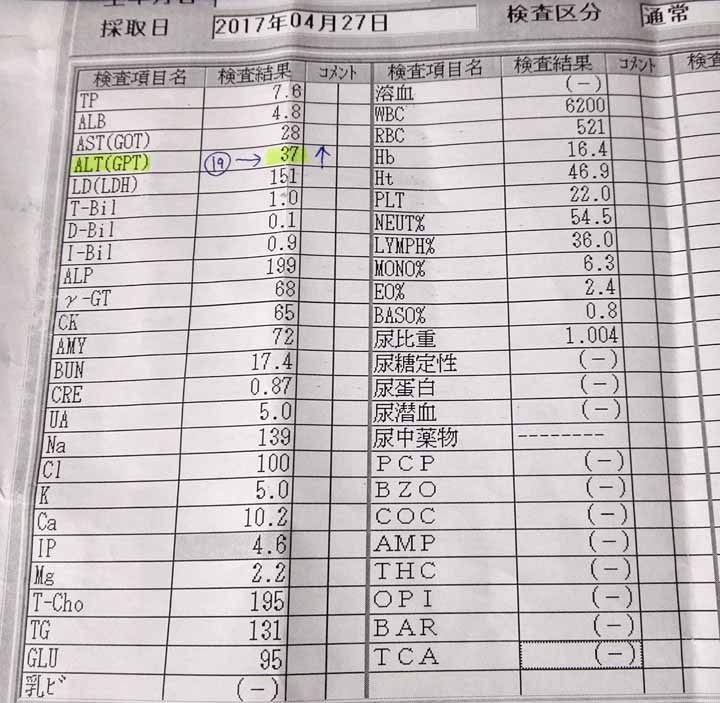 採取日 2017年04月27日 検査区分 通常
検査項目名 検査結果 コメント 検査項目名 検査結果 コメント
TP 7.6 溶血 (-)
ALB 4.8 WBC 6200
AST(GOT) 28 RBC 521
ALT(GPT) 19 → 37 ↑ Hb 16.4
LD(LDH) 151 Ht 46.9
T-Bil 1.0 PLT 22.0
D-Bil 0.1 NEUT% 54.5
I-Bil 0.9 LYMPH% 36.0
ALP 199 MONO% 6.3
γ-GT 68 EO% 2.4
CK 65 BASO% 0.8
AMY 72 尿比重 1.004
BUN 17.4 尿糖定性 (-)
CRE 0.87 尿蛋白 (-)
UA 5.0 尿潜血 (-)
Na 139 尿中薬物 --------
Cl 100 PCP (-)
K 5.0 BZO (-)
Ca 10.2 COC (-)
IP 4.6 AMP (-)
Mg 2.2 THC (-)
T-Cho 195 OPI (-)
TG 131 BAR (-)
GLU 95 TCA (-)
乳ビ (-)